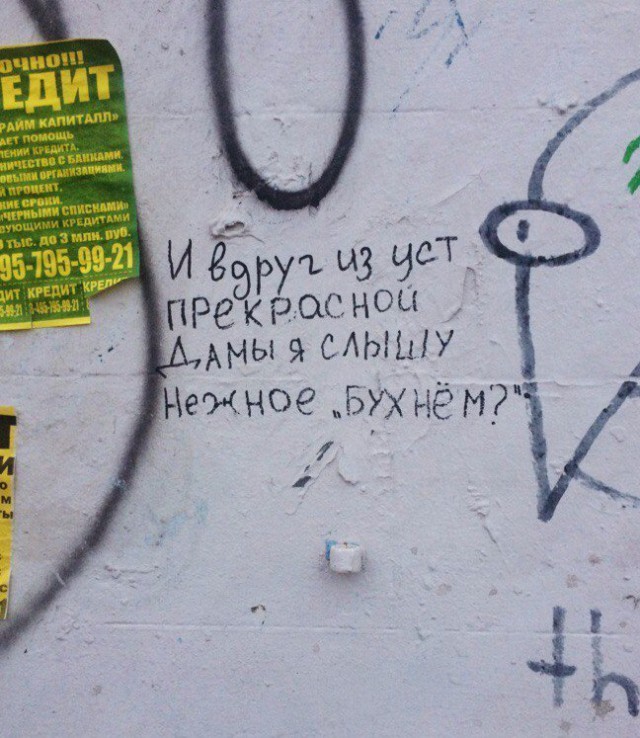 ОЧНО!!!
ЕДИТ
РАЙМ КАПИТАЛЛ»
АЕТ ПОМОЩЬ
ЛЕНИИ КРЕДИТА.
НИЧЕСТВО С БАНКАМИ.
ОВЫМИ ОРГАНИЗАЦИЯМИ.
Й ПРОЦЕНТ.
КИЕ СРОКИ.
«ЧЕРНЫМИ СПИСКАМИ»
ВУЮЩИМИ КРЕДИТАМИ
ТЫС. ДО 3 МЛН. РУБ.
95-795-99-21
ДИТ КРЕДИТ КРЕДИ
И вдруг из уст
прекрасной
Дамы я слышу
нежное „БУХНЁМ?"
th